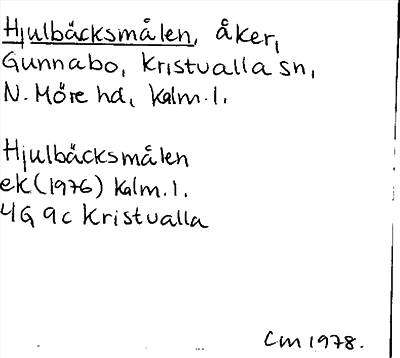 Hjulbäcksmålen, åker,
Gunnabo, Kristvalla sn,
N. Möre hd, Kalm. l.
Hjulbäcksmålen
ek (1976) Kalm. l.
4G 9c Kristvalla
CM 1978.